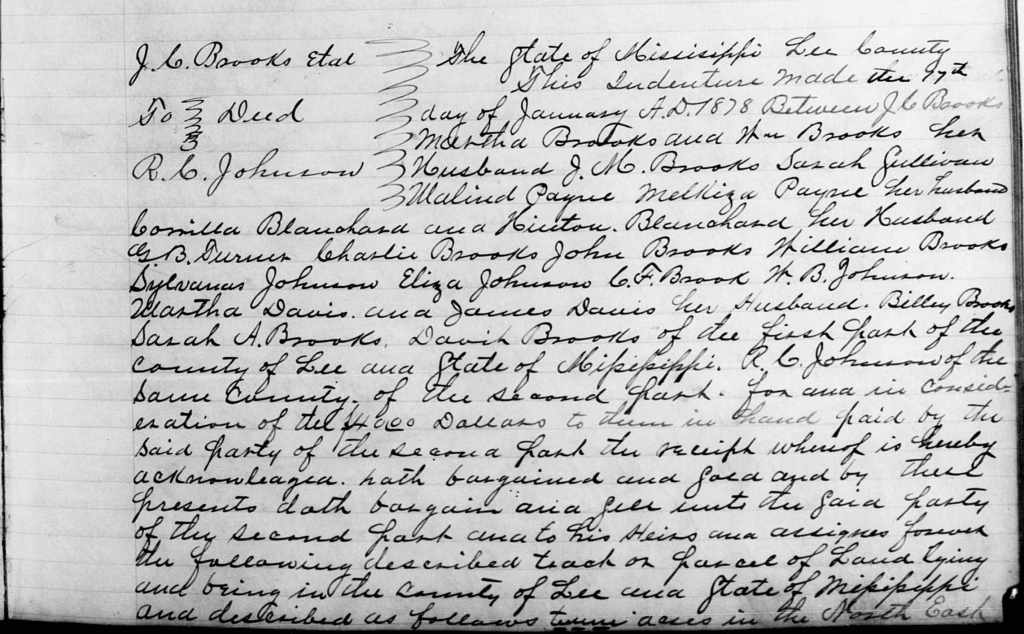 J. C. Brooks Etal The State of Missisippi Lee County
This Indenture made the 17th
To Deed day of January A.D. 1878 Between J C Brooks
Martha Brooks and Wm Brooks her
R. C. Johnson Husband J. M. Brooks Sarah Gullivan
Malind Payne Melkiza Payne her husband
Corrilla Blanchard and Hinton. Blanchard, her Husband
G B. Turner Charlie Brooks John Brooks William Brooks
Sylvanas Johnson Eliza Johnson C. F. Brook W. B. Johnson.
Martha Davis. and James Davis her Husband. Billy Brooks
Sarah A. Brooks, David Brooks of the first part of the
County of Lee and State of Mississippi. R. C. Johnson of the
same County. of the second part. for and in consid-
eration of the Dollars to them in hand paid by the
said party of the second part the receipt whereof is hereby
acknowledged. hath bargained and sold and by these
presents doth bargain and sell unto the said party
of the second part and to his Heirs and assignes forever
the following described track or parcel of Land lying
and being in the County of Lee and State of Mississippi
and described as follows acres in the North East